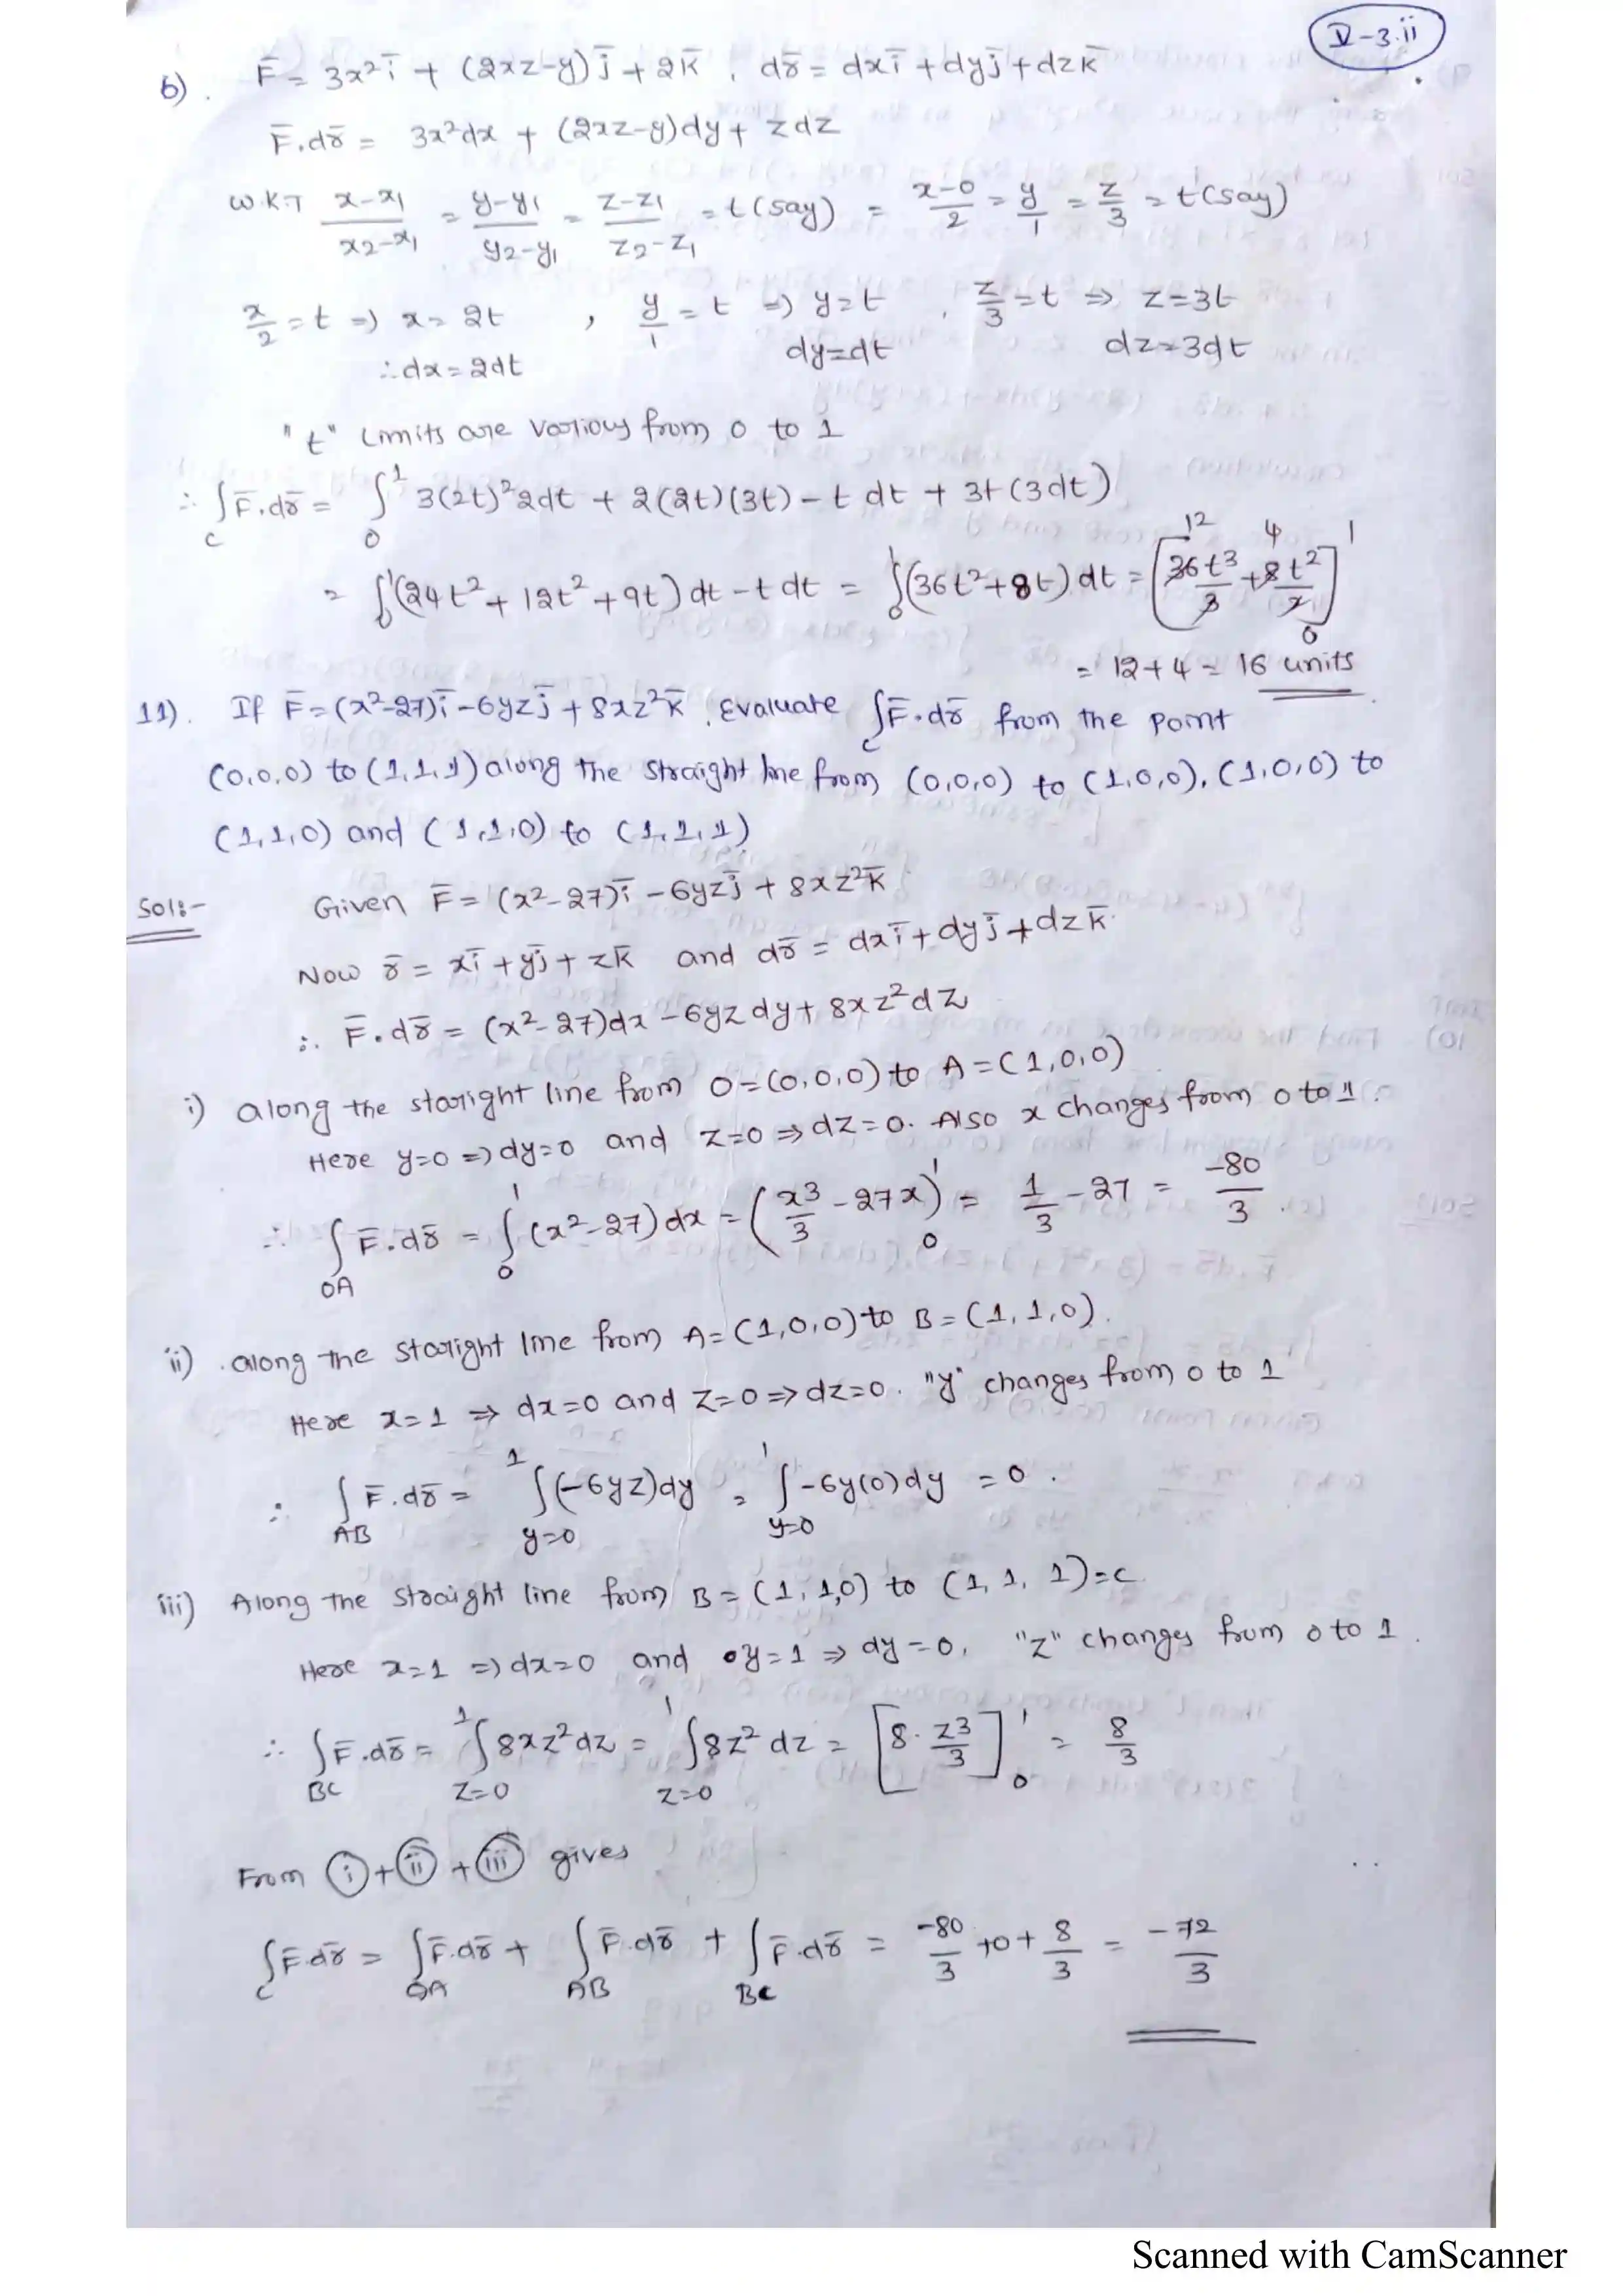 V-3.ii
6). F̄ = 3x²ī + (2xz-y)j̄ + 2k̄, dr̄ = dxī + dyj̄ + dzk̄
F̄.dr̄ = 3x²dx + (2xz-y)dy + zdz
W.K.T (x-x₁)/(x₂-x₁) = (y-y₁)/(y₂-y₁) = (z-z₁)/(z₂-z₁) = t(say) = (x-0)/2 = y/1 = z/3 = t(say)
x/2 = t => x = 2t, y/1 = t => y = t, z/3 = t => z = 3t
∴ dx = 2dt dy = dt dz = 3dt
"t" limits are from 0 to 1
∴ ∫_C F̄.dr̄ = ∫₀¹ 3(2t)²2dt + 2(2t)(3t) - t dt + 3t(3dt)
= ∫₀¹(24t² + 12t² + 9t)dt - t dt = ∫₀¹(36t² + 8t)dt = [36t³/3 12 + 8t²/2 4]₀¹
= 12 + 4 = 16 units
11). If F̄ = (x²-27)ī - 6yzj̄ + 8xz²k̄, Evaluate ∫_C F̄.dr̄ from the point
(0,0,0) to (1,1,1) along the straight line from (0,0,0) to (1,0,0), (1,0,0) to
(1,1,0) and (1,1,0) to (1,1,1)
Sol:- Given F̄ = (x²-27)ī - 6yzj̄ + 8xz²k̄
Now r̄ = xī + yj̄ + zk̄ and dr̄ = dxī + dyj̄ + dzk̄.
∴ F̄.dr̄ = (x²-27)dx - 6yzdy + 8xz²dz
i) along the staright line from O = (0,0,0) to A = (1,0,0)
Here y=0 => dy=0 and z=0 => dz=0. Also x changes from 0 to 1.
∴ ∫_OA F̄.dr̄ = ∫₀¹ (x²-27)dx = (x³/3 - 27x)₀¹ = 1/3 - 27 = -80/3.
ii) along the staright line from A = (1,0,0) to B = (1,1,0).
Here x=1 => dx=0 and z=0 => dz=0. "y" changes from 0 to 1
∴ ∫_AB F̄.dr̄ = ∫_{y=0}^1 (-6yz)dy = ∫_{y=0}^1 -6y(0)dy = 0.
iii) Along the straight line from B = (1,1,0) to (1,1,1) = C
Here x=1 => dx=0 and y=1 => dy=0, "z" changes from 0 to 1.
∴ ∫_BC F̄.dr̄ = ∫_{z=0}^1 8xz²dz = ∫_{z=0}^1 8z²dz = [8.z³/3]₀¹ = 8/3
From (i) + (ii) + (iii) gives
∫_C F̄.dr̄ = ∫_OA F̄.dr̄ + ∫_AB F̄.dr̄ + ∫_BC F̄.dr̄ = -80/3 + 0 + 8/3 = -72/3
Scanned with CamScanner